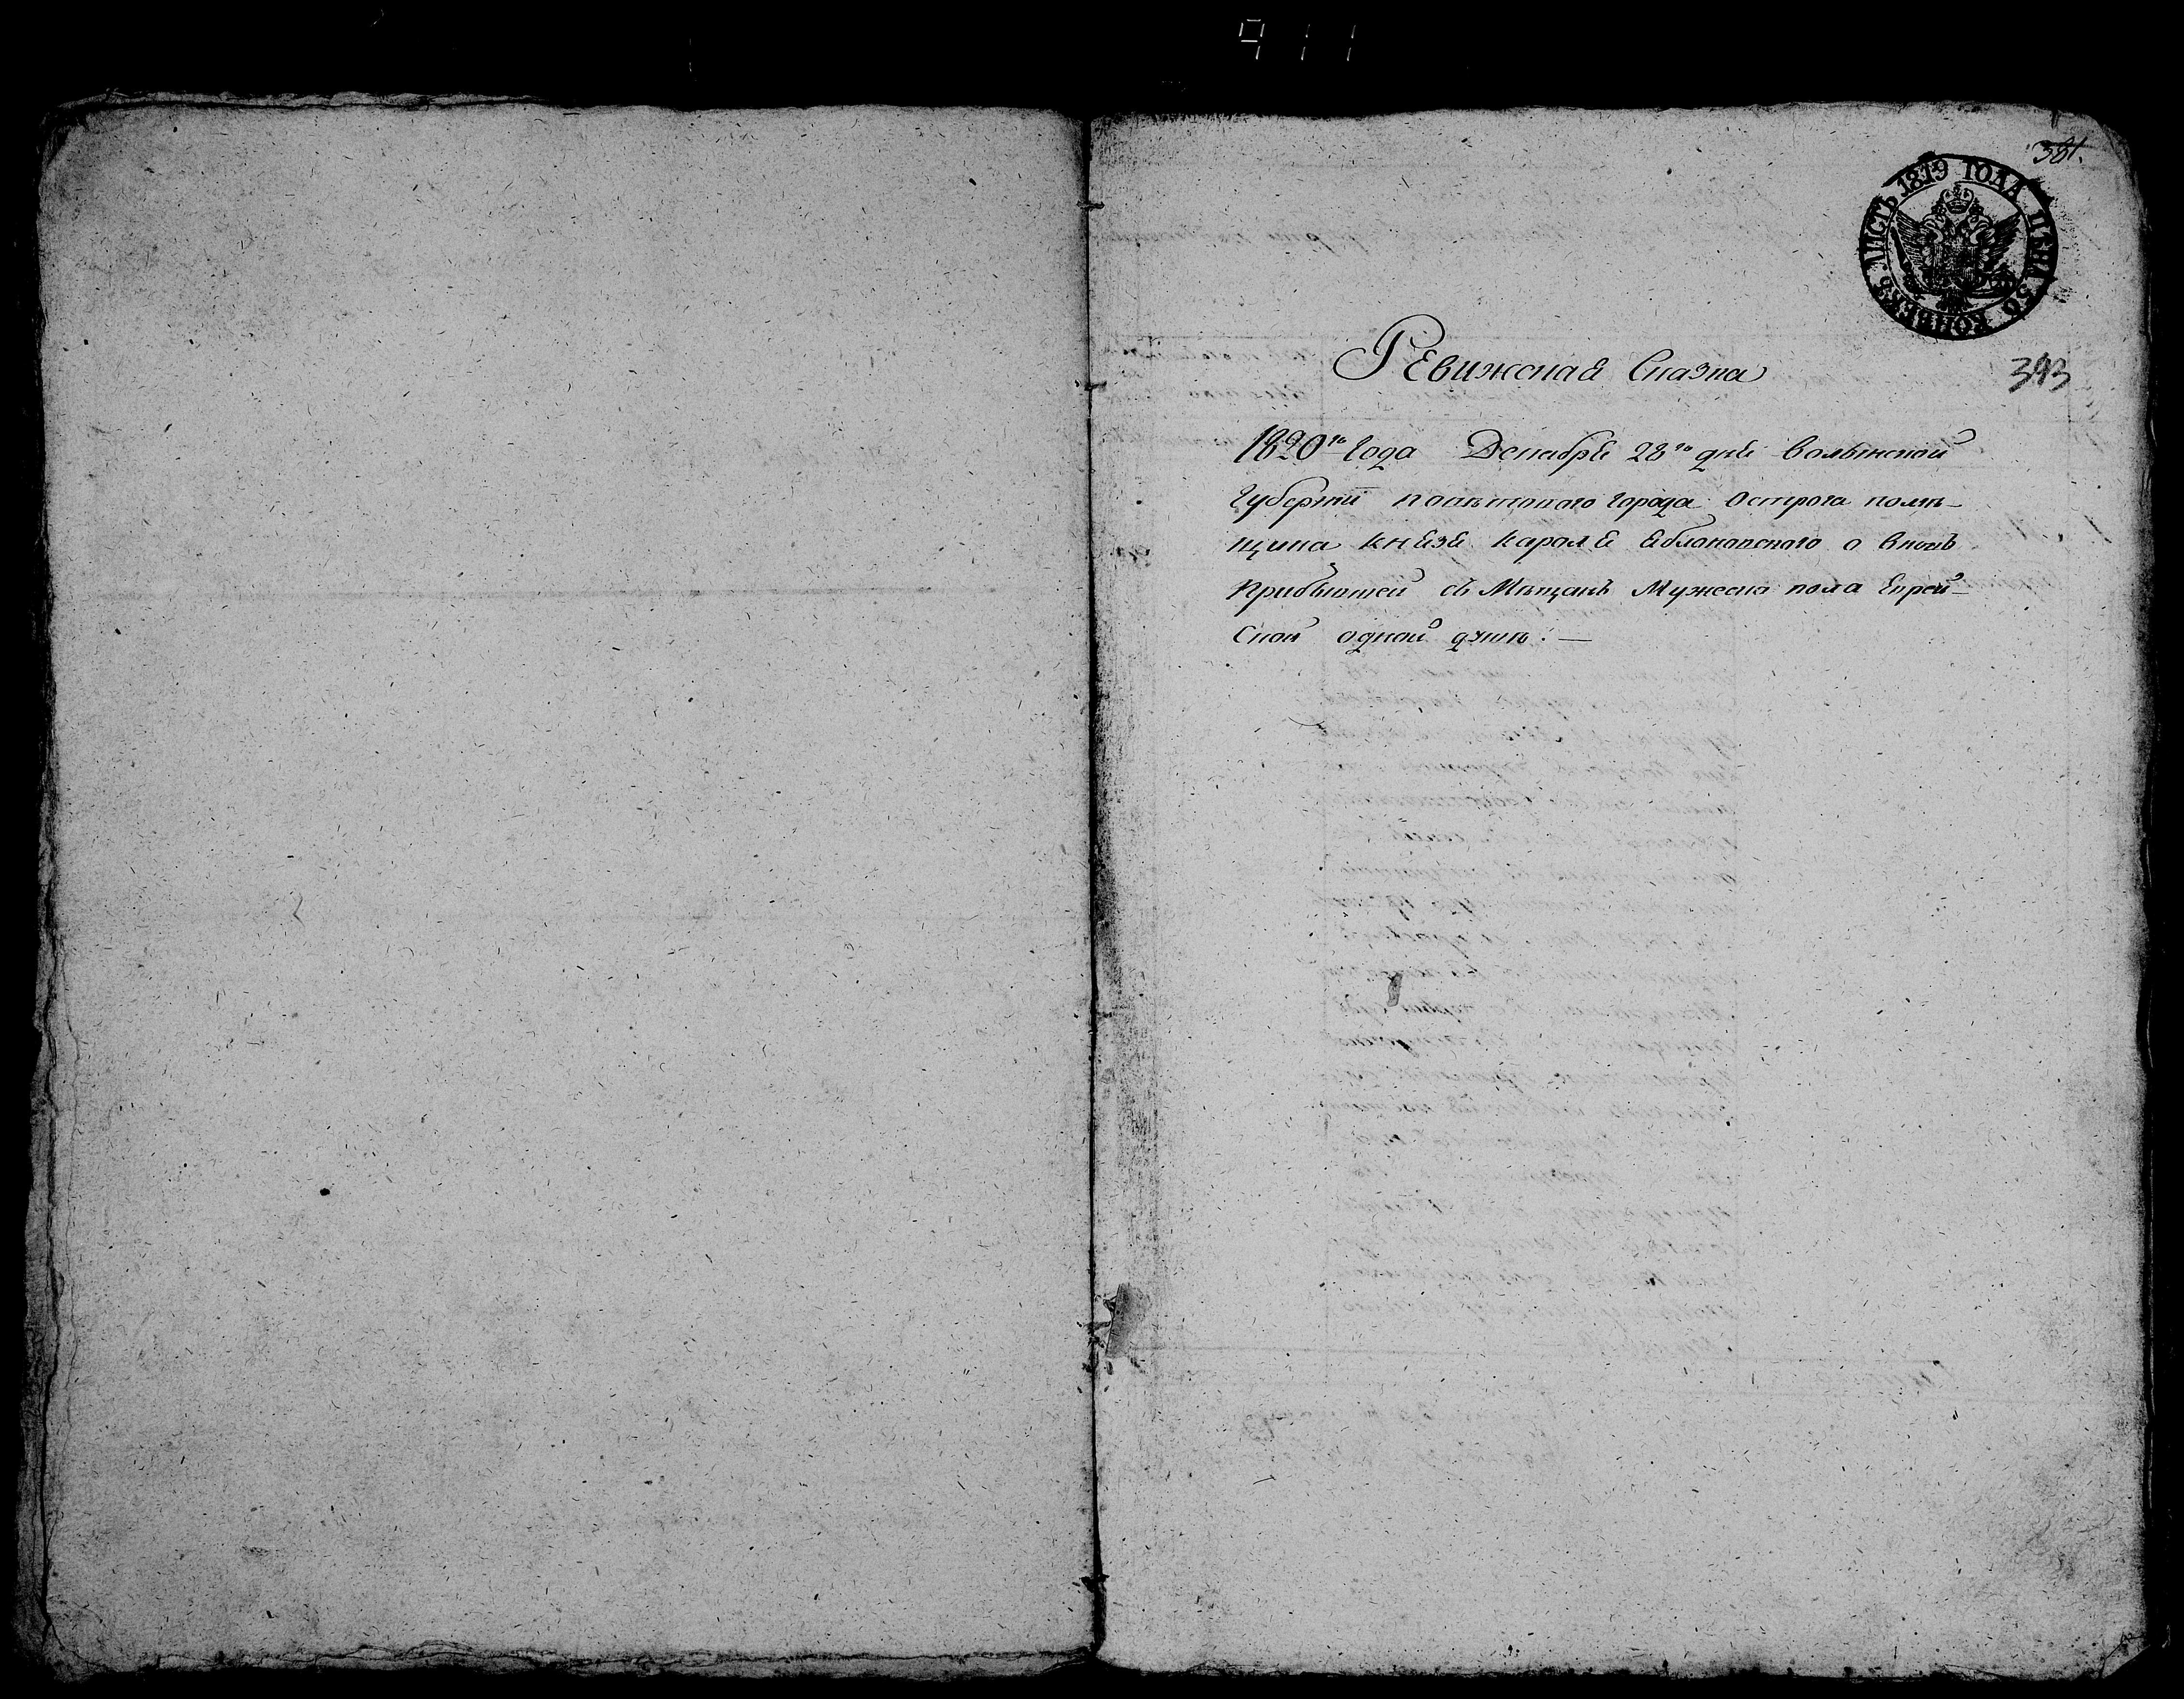 911
381.
ЛИСТЪ 1819 ГОДА ЦѢНА 50 КОПѢЕКЪ
Ревижская Сказка
393
1820го Года Декабря 28го дня Волынской
Губернїи повѣтоваго города Острога помѣ-
щика князя Кароля Яблоновского о вновь
прибывшей съ Мѣщанъ Мужеска пола Еврей-
ской одной душѣ: —